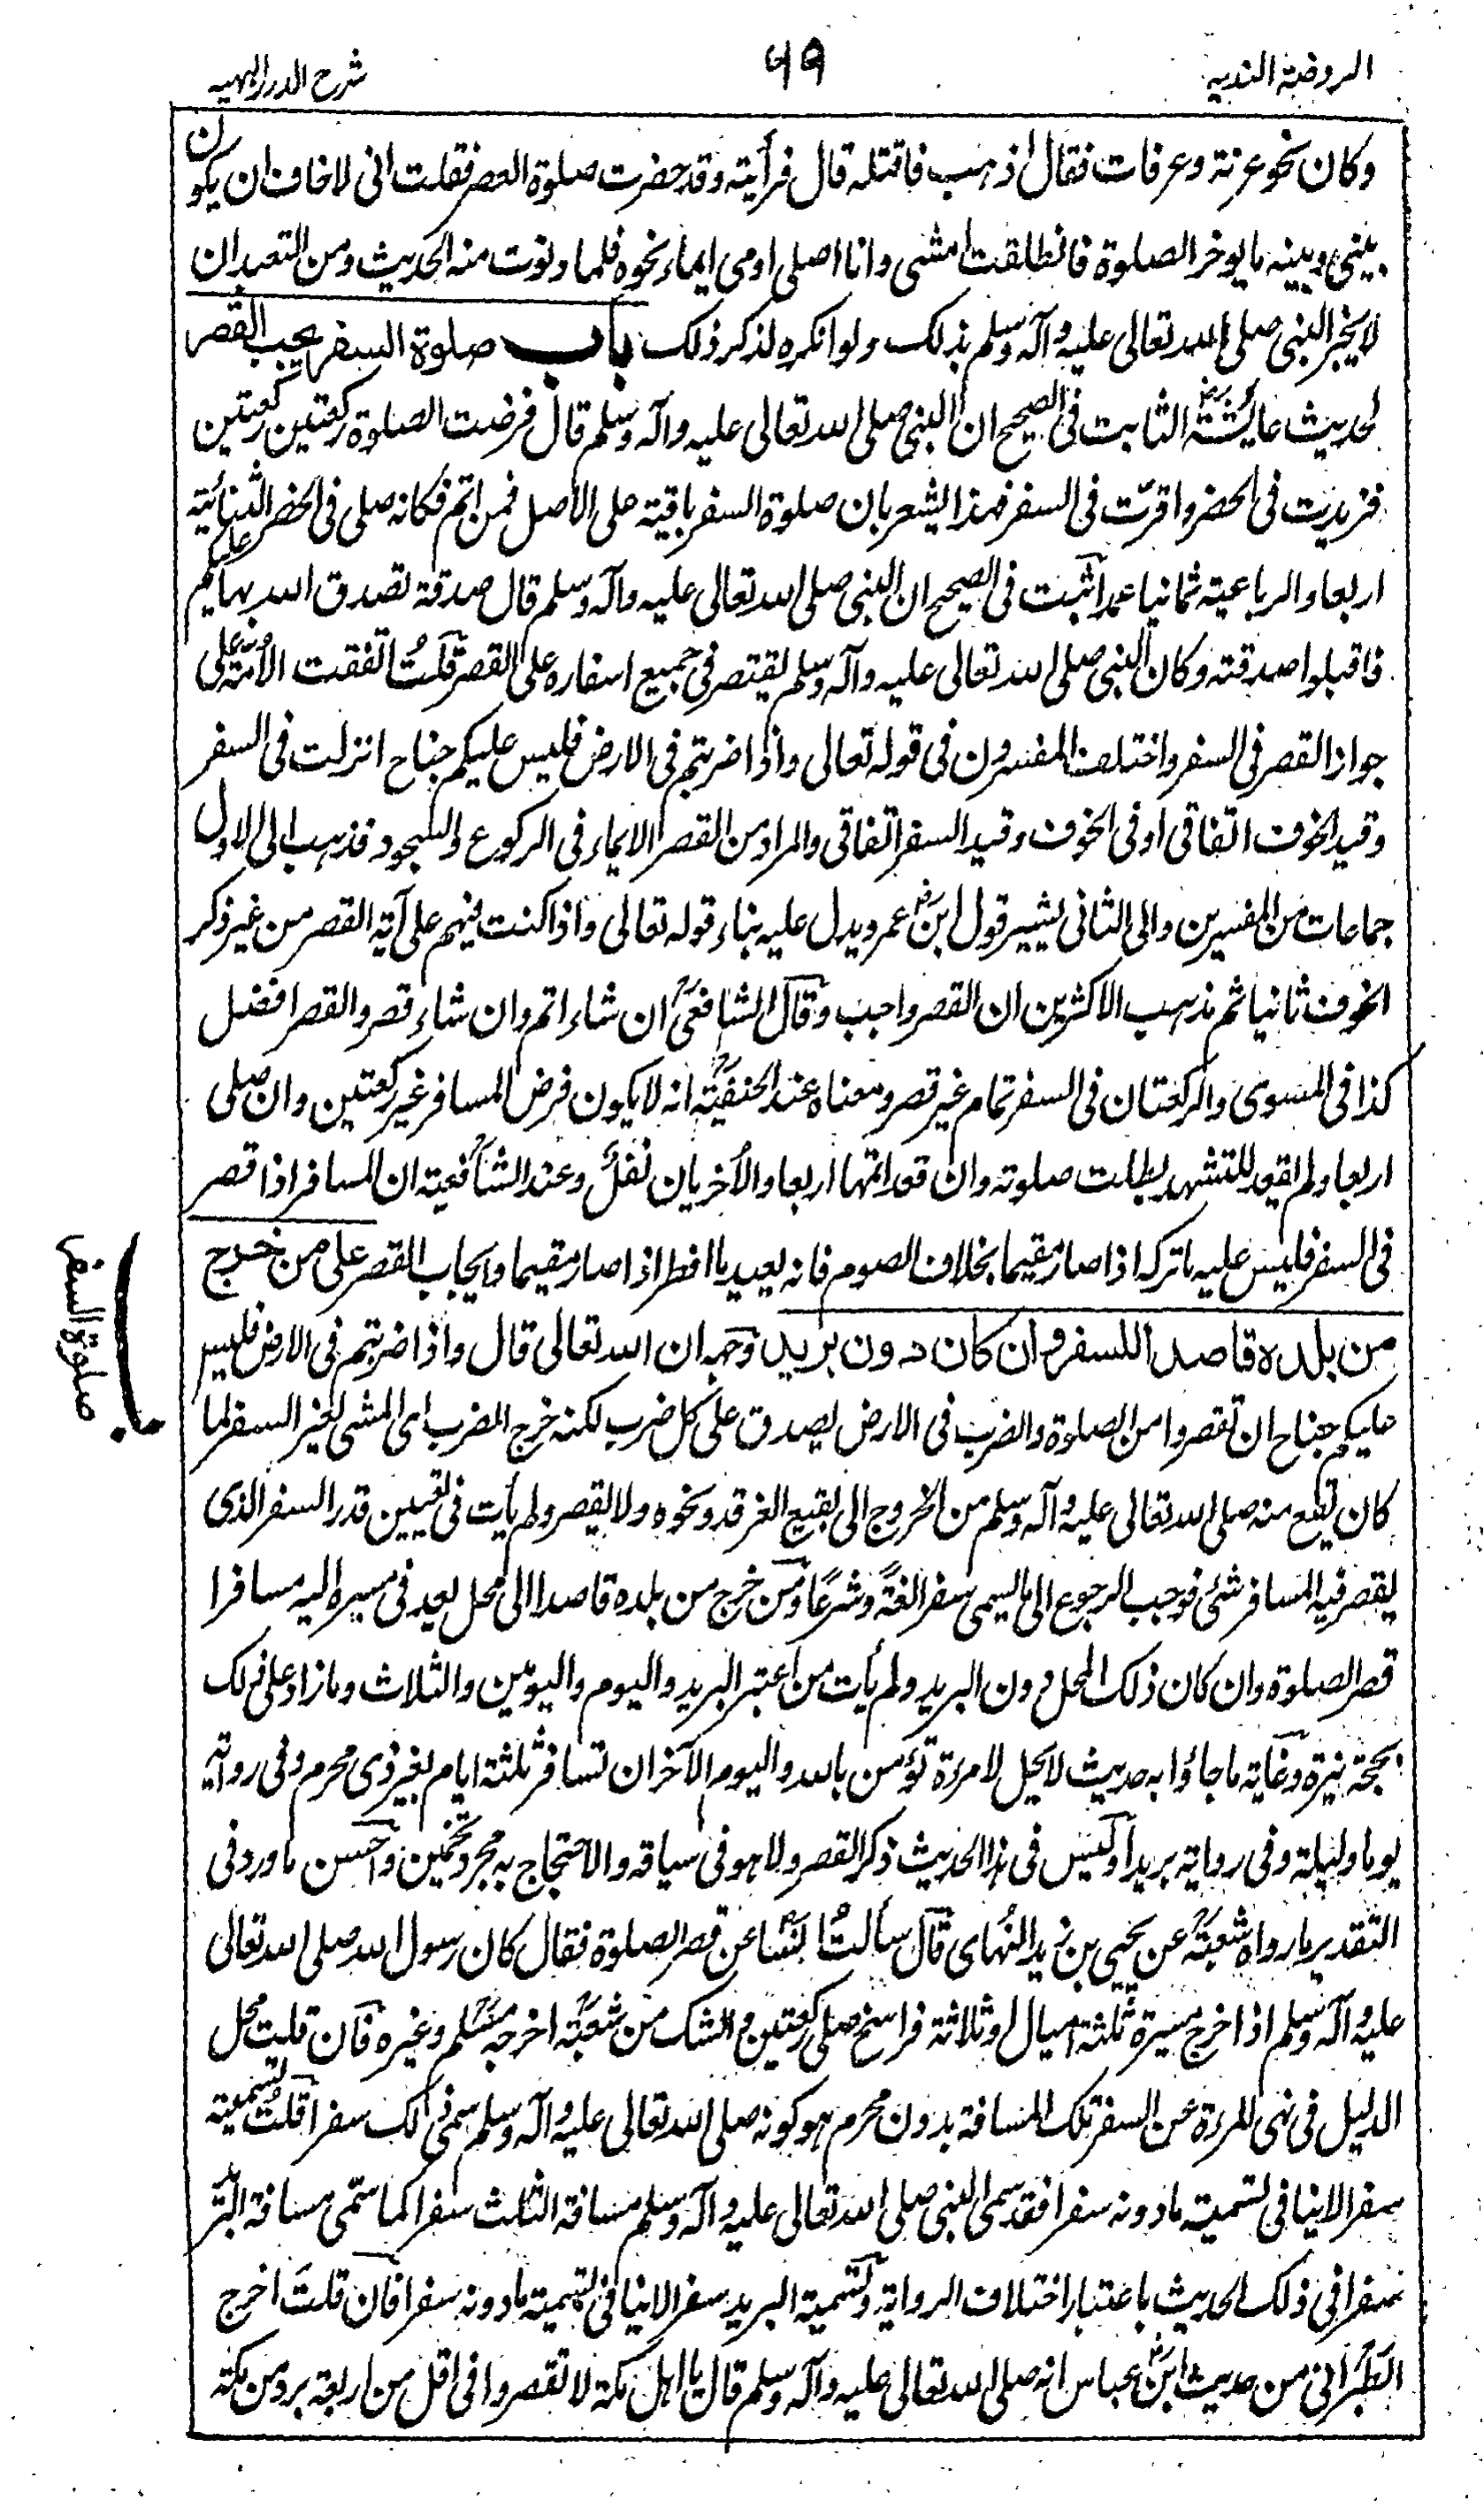 الروضة الندیه
٦٩
شرح الدرر البهیه
وكان نحو عرنة وعرفات فقال اذهب فاقتله قال فرأيته وقد حضرت صلوة العصر فقلت انى لاخاف ان يكون
بينى وبينه ما يوخر الصلوة فانطلقت امشى وانا اصلى اومى ايماء نحوه فلما دنوت منه الحديث ومن البعيد ان
لا يخبر النبى صلى الله تعالى عليه وآله وسلم بذلك ولو انكره لذكر ذلك باب صلوة السفر يجب القصر
لحديث عايشة رض الثابت فى الصحيح ان النبى صلى الله تعالى عليه وآله وسلم قال فرضت الصلوة ركعتين ركعتين
فزيدت فى الحضر واقرّت فى السفر فهذا يشعر بان صلوة السفر باقية على الاصل فمن اتم فكانه صلى فى الحضر الثنائية
اربعا والرباعية ثمانيا عمدا ثبت فى الصحيح ان النبى صلى الله تعالى عليه وآله وسلم قال صدقة تصدق الله بها عليكم
فاقبلوا صدقته وكان النبى صلى الله تعالى عليه وآله وسلم يقتصر فى جميع اسفاره على القصر قلتُ اتفقت الاُمّة على
جواز القصر فى السفر واختلف المفسرون فى قوله تعالى واذا ضربتم فى الارض فليس عليكم جناح انزلت فى السفر
وقيد الخوف اتفاقى او فى الخوف وقيد السفر اتفاقى والمراد من القصر الايماء فى الركوع والسجود فذهب الى الاول
جماعات من المفسرين والى الثانى يشير قول ابن عمر ويدل عليه بناء قوله تعالى واذا كنت فيهم على آية القصر من غير ذكر
الخوف ثانيا ثم مذهب الاكثرين ان القصر واجب وقال الشافعى ان شاء اتم وان شاء قصر والقصر افضل
كذا فى المسوى والركعتان فى السفر تمام غير قصر ومعناه عند الحنفية انه لا يكون فرض المسافر غير ركعتين وان صلى
اربعا ولم يقعد للتشهد بطلت صلوته وان قعد اتمها اربعا والاُخريان نفلٌ وعند الشافعية ان المسافر اذا قصر
فى السفر فليس عليه ما تركه اذا صار مقيما بخلاف الصوم فانه يعيد ما افطر اذا صار مقيما وايجاب القصر على من خرج
من بلده قاصدا للسفر وان كان دون بريد وجهه ان الله تعالى قال واذا ضربتم فى الارض فليس
عليكم جناح ان تقصروا من الصلوة والضرب فى الارض يصدق على كل ضرب لكنه خرج الضرب اى المشى لغير السفر لما
كان يقع منه صلى الله تعالى عليه وآله وسلم من الخروج الى بقيع الغرقد ونحوه ولا يقصر ولم يأت فى تعيين قدر السفر الذى
يقصر فيه المسافر شئ فوجب الرجوع الى ما يسمى سفرا لغةً وشرعًا ومن خرج من بلده قاصدا الى محل يعد فى مسيره اليه مسافرا
قصر الصلوة وان كان ذلك المحل دون البريد ولم يأت من اعتبر البريد واليوم واليومين والثلاث وما زاد على ذلك
بحجة نيرة وغاية ما جاؤا به حديث لا يحل لامرءة تؤمن بالله واليوم الآخر ان تسافر ثلثة ايام بغير ذى محرم وفى رواية
يوما وليلة وفى رواية بريدا وليس فى هذا الحديث ذكر القصر ولا هو فى سياقه والاحتجاج به مجرد تخمين واحسن ما ورد فى
التقدير ما رواه شعبة عن يحيى بن يزيد الهُنائى قال سألتُ انسا عن قصر الصلوة فقال كان رسول الله صلى الله تعالى
عليه وآله وسلم اذا خرج مسيرة ثلثة اميال او ثلاثة فراسخ صلى ركعتين والشك من شعبة اخرجه مسلم وغيره فان قلت محل
الدليل فى نهى المرءة عن السفر تلك المسافة بدون محرم هو كونه صلى الله تعالى عليه وآله وسلم سمى ذلك سفرا قلتُ تسميته
سفرا لا ينافى تسمية ما دونه سفرا فقد سمى النبى صلى الله تعالى عليه وآله وسلم مسافة الثلث سفرا كما سمّى مسافة البريد
سفرا فى ذلك الحديث باعتبار اختلاف الرواية وتسمية البريد سفرا لا ينافى تسمية ما دونه سفرا فان قلتَ اخرج
الطبرانى من حديث ابن عباس انه صلى الله تعالى عليه وآله وسلم قال يا اهل مكة لا تقصروا فى اقل من اربعة برد من مكة
صلوة السفر